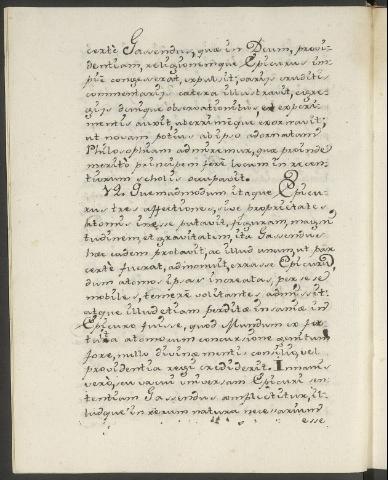 certè Gassendus, quæ in Deum, provi-
dentiam, religionemque Epicurus im-
piè congesserat, expulsit; varijs eruditis
commentarijs cætera illustravit, egre-
gijs denique observationibus, et experi-
mentis auxit, uberrimèque exornavit;
ut novam potius ab ipso adornatam
Philosophiam admiremur, quæ proinde
meritò principem ferè locum in recen-
tiorum scholis occupavit.
Quemadmodum itaque Epicu-
rus tres affectiones, sive proprietates
atomis inesse putavit, figuram, magni-
tudinem, et gravitatem, ita Gassendus
hæc eadem probavit, ac illud unum, ut par
certè fuerat, admonuit, errasse Epicurum,
dum atomos ipsas increatas, per se se
mobiles, temerè volitantes admissit:
atque illud etiam perditæ insaniæ in
Epicuro fuisse, quod Mundum ex for-
tuita atomorum concursione genitum
fore, nullo divinæ mentis consilio, vel
providentia regi crediderit. Inmanis
verò, cu vacui universam Epicuri sen-
tentiam Gassendus amplectitur, il-
ludque in rerum natura necessarium
esse